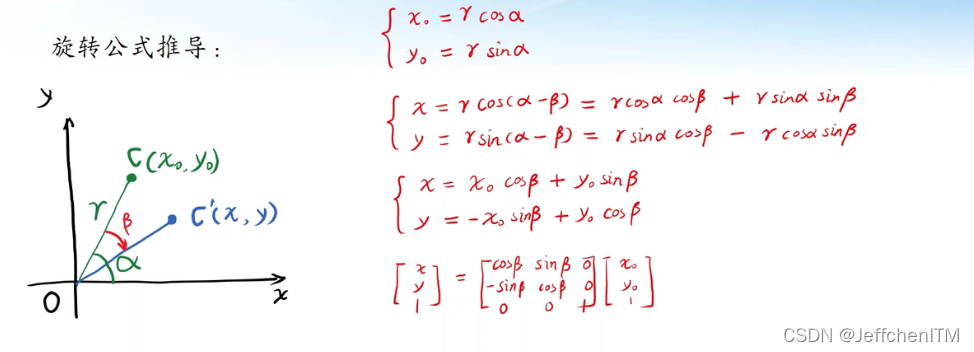 旋转公式推导:
y
C(x₀, y₀)
r
β
C'(x, y)
α
O
x
{ x₀ = r cosα
y₀ = r sinα
{ x = r cos(α-β) = r cosα cosβ + r sinα sinβ
y = r sin(α-β) = r sinα cosβ - r cosα sinβ
{ x = x₀ cosβ + y₀ sinβ
y = -x₀ sinβ + y₀ cosβ
[x y 1] = [cosβ sinβ 0 -sinβ cosβ 0 0 0 1] [x₀ y₀ 1]
CSDN @JeffchenITM